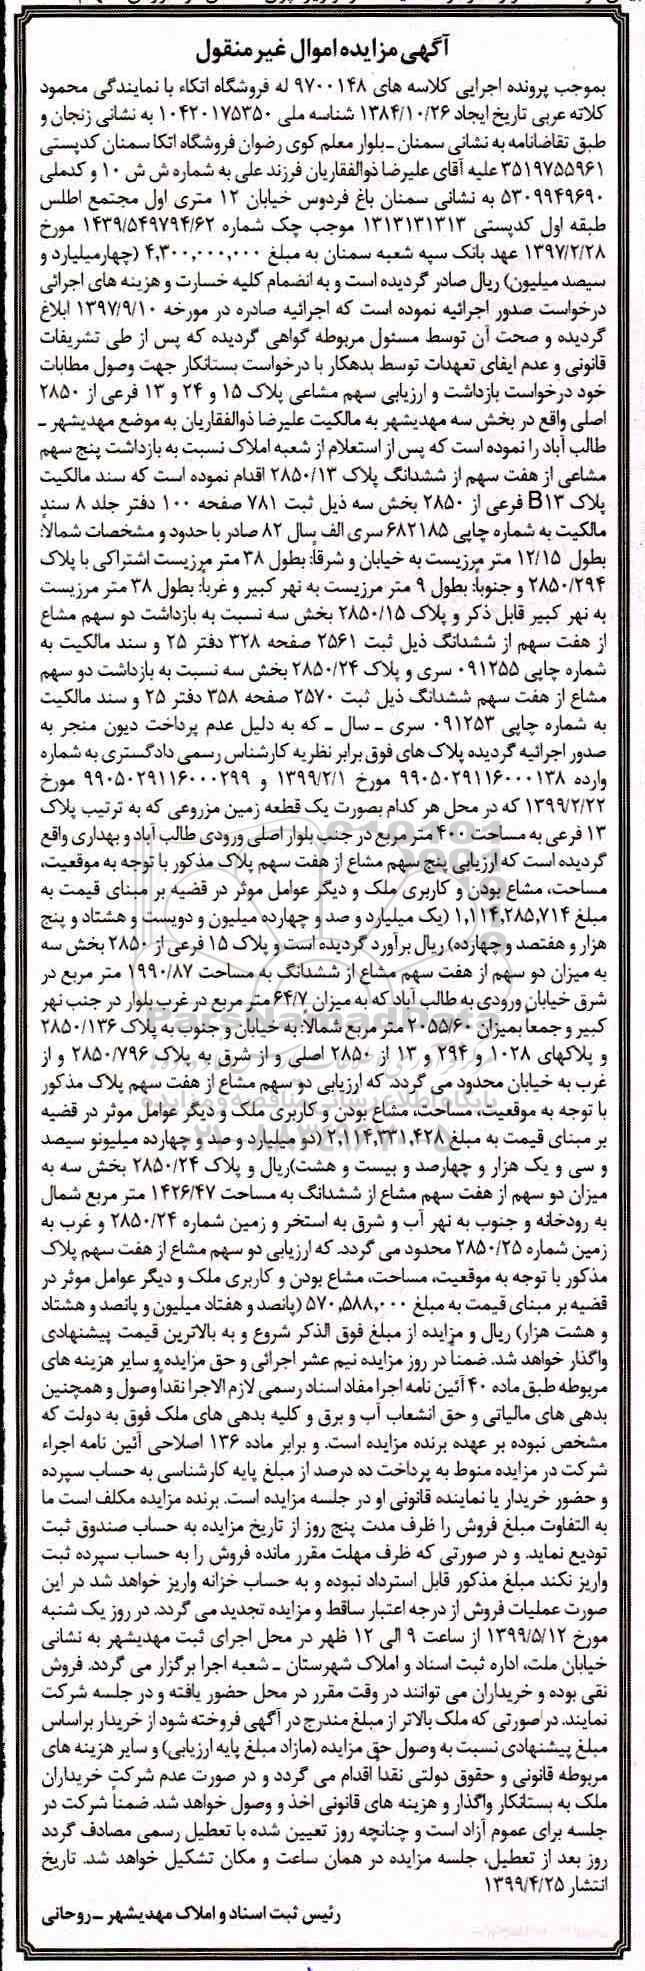 آگهی مزایده اموال غیر منقول
بموجب پرونده اجرایی کلاسه های ۹۷۰۰۱۴۸ له فروشگاه اتکاء با نمایندگی محمود
کلاته عربی تاریخ ایجاد ۱۳۸۴/۱۰/۲۶ شناسه ملی ۱۰۴۲۰۱۷۵۳۵۰ به نشانی زنجان و
طبق تقاضانامه به نشانی سمنان ـ بلوار معلم کوی رضوان فروشگاه اتکا سمنان کدپستی
۳۵۱۹۷۵۵۹۶۱ علیه آقای علیرضا ذوالفقاریان فرزند علی به شماره ش ش ۱۰ و کدملی
۵۳۰۹۹۴۹۶۹۰ به نشانی سمنان باغ فردوس خیابان ۱۲ متری اول مجتمع اطلس
طبقه اول کدپستی ۱۳۱۳۱۳۱۳۱۳ موجب چک شماره ۱۴۳۹/۵۴۹۷۹۴/۶۲ مورخ
۱۳۹۷/۲/۲۸ عهد بانک سپه شعبه سمنان به مبلغ ۴,۳۰۰,۰۰۰,۰۰۰ (چهارمیلیارد و
سیصد میلیون) ریال صادر گردیده است و به انضمام کلیه خسارت و هزینه های اجرائی
درخواست صدور اجرائیه نموده است که اجرائیه صادره در مورخه ۱۳۹۷/۹/۱۰ ابلاغ
گردیده و صحت آن توسط مسئول مربوطه گواهی گردیده که پس از طی تشریفات
قانونی و عدم ایفای تعهدات توسط بدهکار با درخواست بستانکار جهت وصول مطابات
خود درخواست بازداشت و ارزیابی سهم مشاعی پلاک ۱۵ و ۲۴ و ۱۳ فرعی از ۲۸۵۰
اصلی واقع در بخش سه مهدیشهر به مالکیت علیرضا ذوالفقاریان به موضع مهدیشهر ـ
طالب آباد را نموده است که پس از استعلام از شعبه املاک نسبت به بازداشت پنج سهم
مشاعی از هفت سهم از ششدانگ پلاک ۲۸۵۰/۱۳ اقدام نموده است که سند مالکیت
پلاک B۱۳ فرعی از ۲۸۵۰ بخش سه ذیل ثبت ۷۸۱ صفحه ۱۰۰ دفتر جلد ۸ سند
مالکیت به شماره چاپی ۶۸۲۱۸۵ سری الف سال ۸۲ صادر با حدود و مشخصات شمالاً:
بطول ۱۲/۱۵ متر مرزیست به خیابان و شرقاً: بطول ۳۸ متر مرزیست اشتراکی با پلاک
۲۸۵۰/۲۹۴ و جنوباً: بطول ۹ متر مرزیست به نهر کبیر و غرباً: بطول ۳۸ متر مرزیست
به نهر کبیر قابل ذکر و پلاک ۲۸۵۰/۱۵ بخش سه نسبت به بازداشت دو سهم مشاع
از هفت سهم از ششدانگ ذیل ثبت ۲۵۶۱ صفحه ۳۲۸ دفتر ۲۵ و سند مالکیت به
شماره چاپی ۰۹۱۲۵۵ سری و پلاک ۲۸۵۰/۲۴ بخش سه نسبت به بازداشت دو سهم
مشاع از هفت سهم ششدانگ ذیل ثبت ۲۵۷۰ صفحه ۳۵۸ دفتر ۲۵ و سند مالکیت
به شماره چاپی ۰۹۱۲۵۳ سری ـ سال ـ که به دلیل عدم پرداخت دیون منجر به
صدور اجرائیه گردیده پلاک های فوق برابر نظریه کارشناس رسمی دادگستری به شماره
وارده ۹۹۰۵۰۲۹۱۱۶۰۰۰۱۳۸ مورخ ۱۳۹۹/۲/۱ و ۹۹۰۵۰۲۹۱۱۶۰۰۰۲۹۹ مورخ
۱۳۹۹/۲/۲۲ که در محل هر کدام بصورت یک قطعه زمین مزروعی که به ترتیب پلاک
۱۳ فرعی به مساحت ۴۰۰ متر مربع در جنب بلوار اصلی ورودی طالب آباد و بهداری واقع
گردیده است که ارزیابی پنج سهم مشاع از هفت سهم پلاک مذکور با توجه به موقعیت،
مساحت، مشاع بودن و کاربری ملک و دیگر عوامل موثر در قضیه بر مبنای قیمت به
مبلغ ۱,۱۱۴,۲۸۵,۷۱۴ (یک میلیارد و صد و چهارده میلیون و دویست و هشتاد و پنج
هزار و هفتصد و چهارده) ریال برآورد گردیده است و پلاک ۱۵ فرعی از ۲۸۵۰ بخش سه
به میزان دو سهم از هفت سهم مشاع از ششدانگ به مساحت ۱۹۹۰/۸۷ متر مربع در
شرق خیابان ورودی به طالب آباد که به میزان ۶۴/۷ متر مربع در غرب بلوار در جنب نهر
کبیر و جمعاً بمیزان ۲۰۵۵/۶۰ متر مربع شمالاً: به خیابان و جنوب به پلاک ۲۸۵۰/۱۳۶
و پلاکهای ۱۰۲۸ و ۲۹۴ و ۱۳ از ۲۸۵۰ اصلی و از شرق به پلاک ۲۸۵۰/۷۹۶ و از
غرب به خیابان محدود می گردد. که ارزیابی دو سهم مشاع از هفت سهم پلاک مذکور
با توجه به موقعیت، مساحت، مشاع بودن و کاربری ملک و دیگر عوامل موثر در قضیه
بر مبنای قیمت به مبلغ ۲,۱۱۴,۳۳۱,۴۲۸ (دو میلیارد و صد و چهارده میلیونو سیصد
و سی و یک هزار و چهارصد و بیست و هشت)ریال و پلاک ۲۸۵۰/۲۴ بخش سه به
میزان دو سهم از هفت سهم مشاع از ششدانگ به مساحت ۱۴۲۶/۴۷ متر مربع شمال
به رودخانه و جنوب به نهر آب و شرق به استخر و زمین شماره ۲۸۵۰/۲۴ و غرب به
زمین شماره ۲۸۵۰/۲۵ محدود می گردد. که ارزیابی دو سهم مشاع از هفت سهم پلاک
مذکور با توجه به موقعیت، مساحت، مشاع بودن و کاربری ملک و دیگر عوامل موثر در
قضیه بر مبنای قیمت به مبلغ ۵۷۰,۵۸۸,۰۰۰ (پانصد و هفتاد میلیون و پانصد و هشتاد
و هشت هزار) ریال و مزایده از مبلغ فوق الذکر شروع و به بالاترین قیمت پیشنهادی
واگذار خواهد شد. ضمناً در روز مزایده نیم عشر اجرائی و حق مزایده و سایر هزینه های
مربوطه طبق ماده ۴۰ آئین نامه اجرا مفاد اسناد رسمی لازم الاجرا نقداً وصول و همچنین
بدهی های مالیاتی و حق انشعاب آب و برق و کلیه بدهی های ملک فوق به دولت که
مشخص نبوده بر عهده برنده مزایده است. و برابر ماده ۱۳۶ اصلاحی آئین نامه اجراء
شرکت در مزایده منوط به پرداخت ده درصد از مبلغ پایه کارشناسی به حساب سپرده
و حضور خریدار یا نماینده قانونی او در جلسه مزایده است. برنده مزایده مکلف است ما
به التفاوت مبلغ فروش را ظرف مدت پنج روز از تاریخ مزایده به حساب صندوق ثبت
تودیع نماید. و در صورتی که ظرف مهلت مقرر مانده فروش را به حساب سپرده ثبت
واریز نکند مبلغ مذکور قابل استرداد نبوده و به حساب خزانه واریز خواهد شد در این
صورت عملیات فروش از درجه اعتبار ساقط و مزایده تجدید می گردد. در روز یک شنبه
مورخ ۱۳۹۹/۵/۱۲ از ساعت ۹ الی ۱۲ ظهر در محل اجرای ثبت مهدیشهر به نشانی
خیابان ملت، اداره ثبت اسناد و املاک شهرستان ـ شعبه اجرا برگزار می گردد. فروش
نقی بوده و خریداران می توانند در وقت مقرر در محل حضور یافته و در جلسه شرکت
نمایند. در صورتی که ملک بالاتر از مبلغ مندرج در آگهی فروخته شود از خریدار براساس
مبلغ پیشنهادی نسبت به وصول حق مزایده (مازاد مبلغ پایه ارزیابی) و سایر هزینه های
مربوطه قانونی و حقوق دولتی نقداً اقدام می گردد و در صورت عدم شرکت خریداران
ملک به بستانکار واگذار و هزینه های قانونی اخذ و وصول خواهد شد. ضمناً شرکت در
جلسه برای عموم آزاد است و چنانچه روز تعیین شده با تعطیل رسمی مصادف گردد
روز بعد از تعطیل، جلسه مزایده در همان ساعت و مکان تشکیل خواهد شد. تاریخ
انتشار ۱۳۹۹/۴/۲۵
رئیس ثبت اسناد و املاک مهدیشهر ـ روحانی
ParsNamadData
پایگاه اطلاع رسانی مناقصه و مزایده